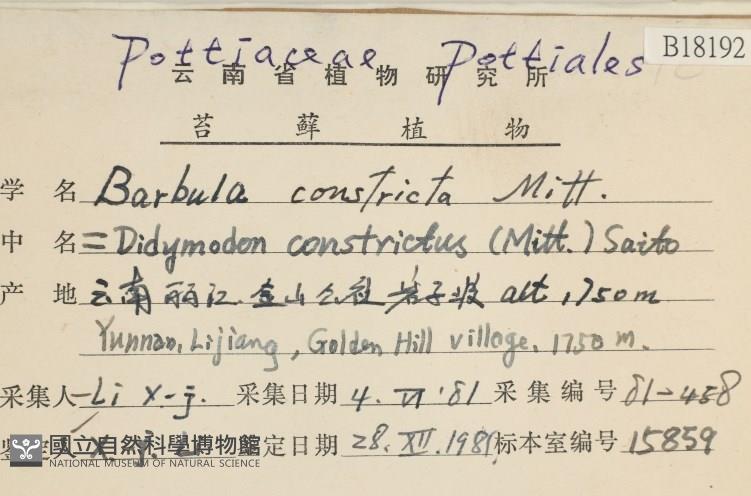 Pottiaceae Pottiales B18192
云南省植物研究所
苔藓植物
学名 Barbula constricta Mitt.
中名 = Didymodon constrictus (Mitt.) Saito
产地 云南丽江 金山公社 岩子坡 alt, 1750m
Yunnan, Lijiang, Golden Hill village, 1750 m.
采集人 Li X-j. 采集日期 4. VI '81 采集编号 81-458
X-j. 定日期 28. XII. 1981 标本室编号 15859
國立自然科學博物館
NATIONAL MUSEUM OF NATURAL SCIENCE